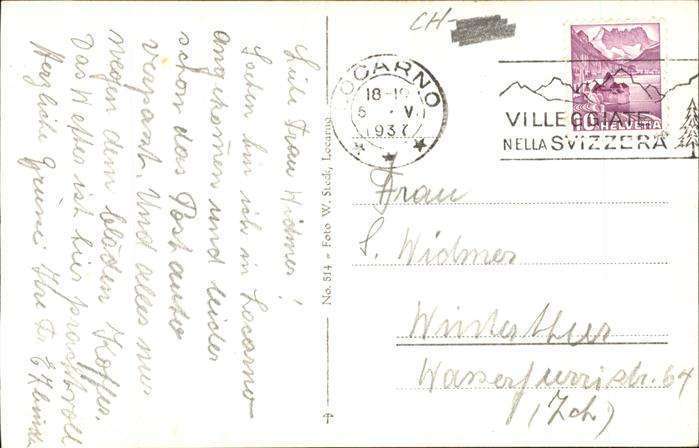 CH-
LOCARNO
18-19
6. VI
1937
VILLEGGIATE
NELLA SVIZZERA
10 HELVETIA
Liebe Frau Widmer!
Soeben bin ich in Locarno
angekomen und leider
schon das Postauto
verpasst. Und alles nur
wegen dem blöden Koffer.
Das Wetter ist hier prachtvoll
Herzliche Grüsse Ihre Fr.
No. 814 - Foto W. Steck, Locarno
Frau
S. Widmer
Winterthur
Wasserfurristr. 64
(Zch.)